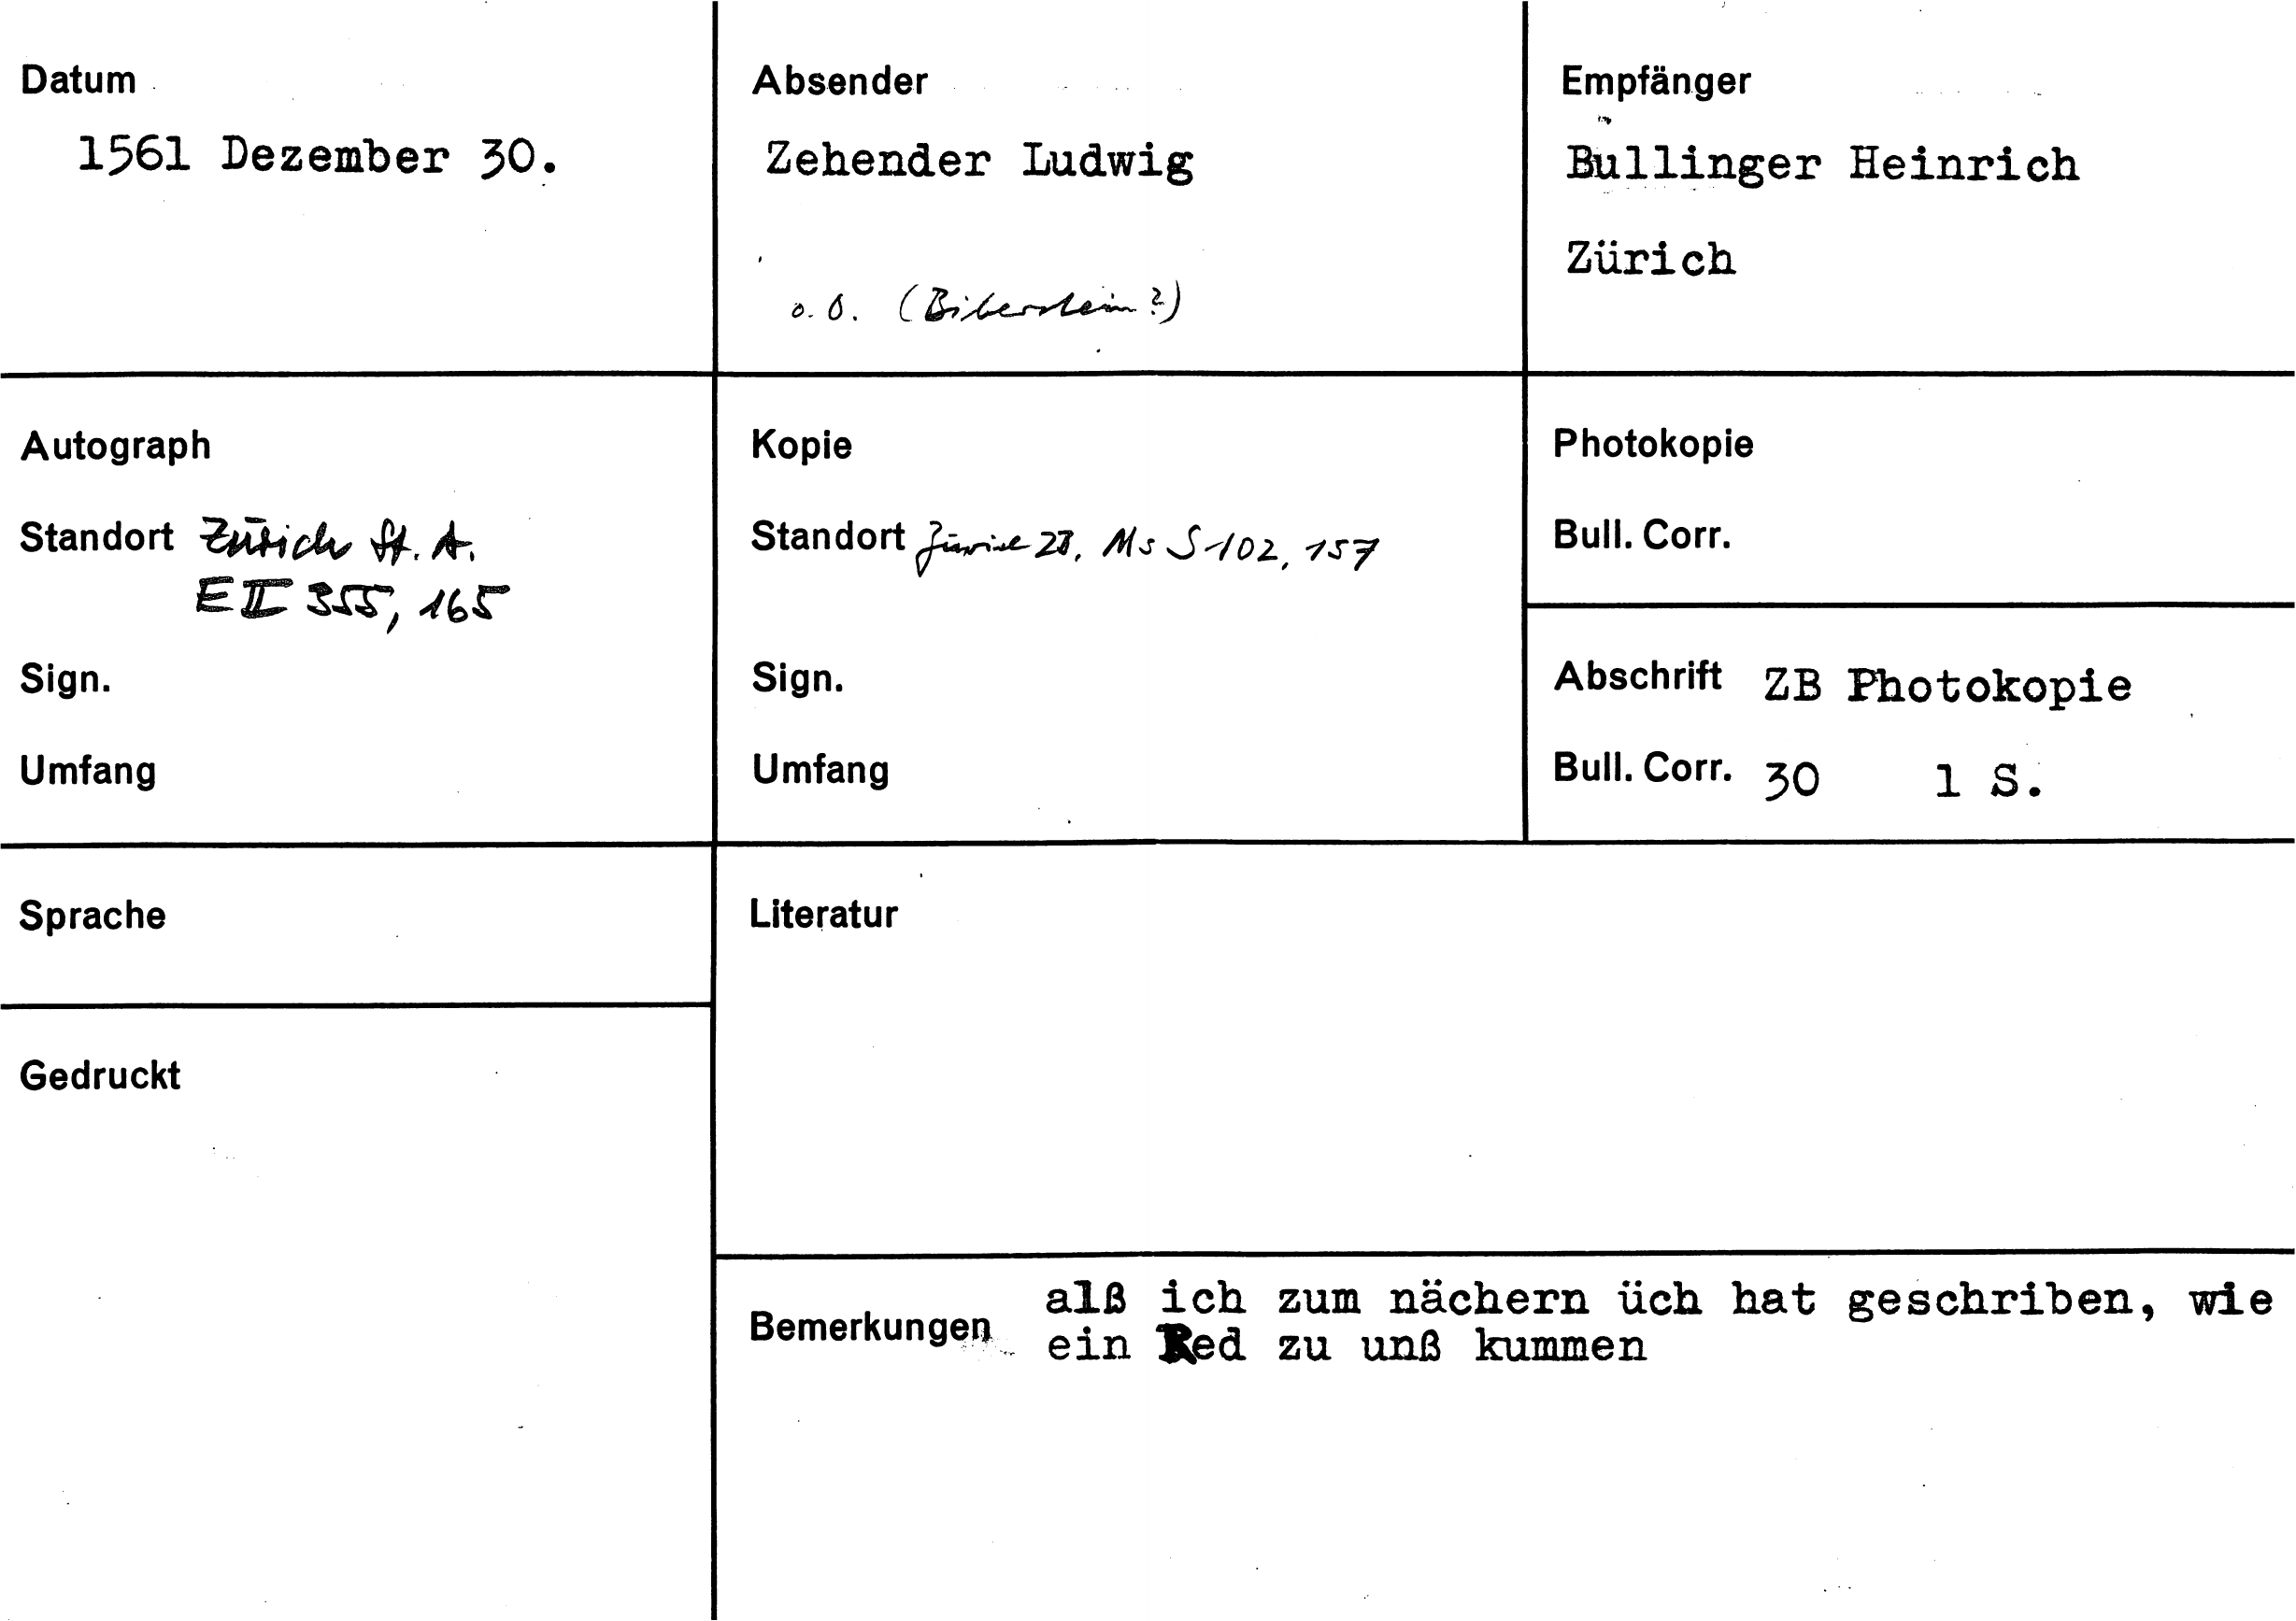 Datum
1561 Dezember 30.
Absender
Zehender Ludwig
o. O. (Biberstein?)
Empfänger
Bullinger Heinrich
Zürich
Autograph
Standort Zürich St. A.
E II 355, 165
Sign.
Umfang
Kopie
Standort Zürich ZB, Ms S 102, 157
Sign.
Umfang
Photokopie
Bull. Corr.
Abschrift ZB Photokopie
Bull. Corr. 30 1 S.
Sprache
Literatur
Gedruckt
Bemerkungen alß ich zum nächern üch hat geschriben, wie
ein Red zu unß kummen